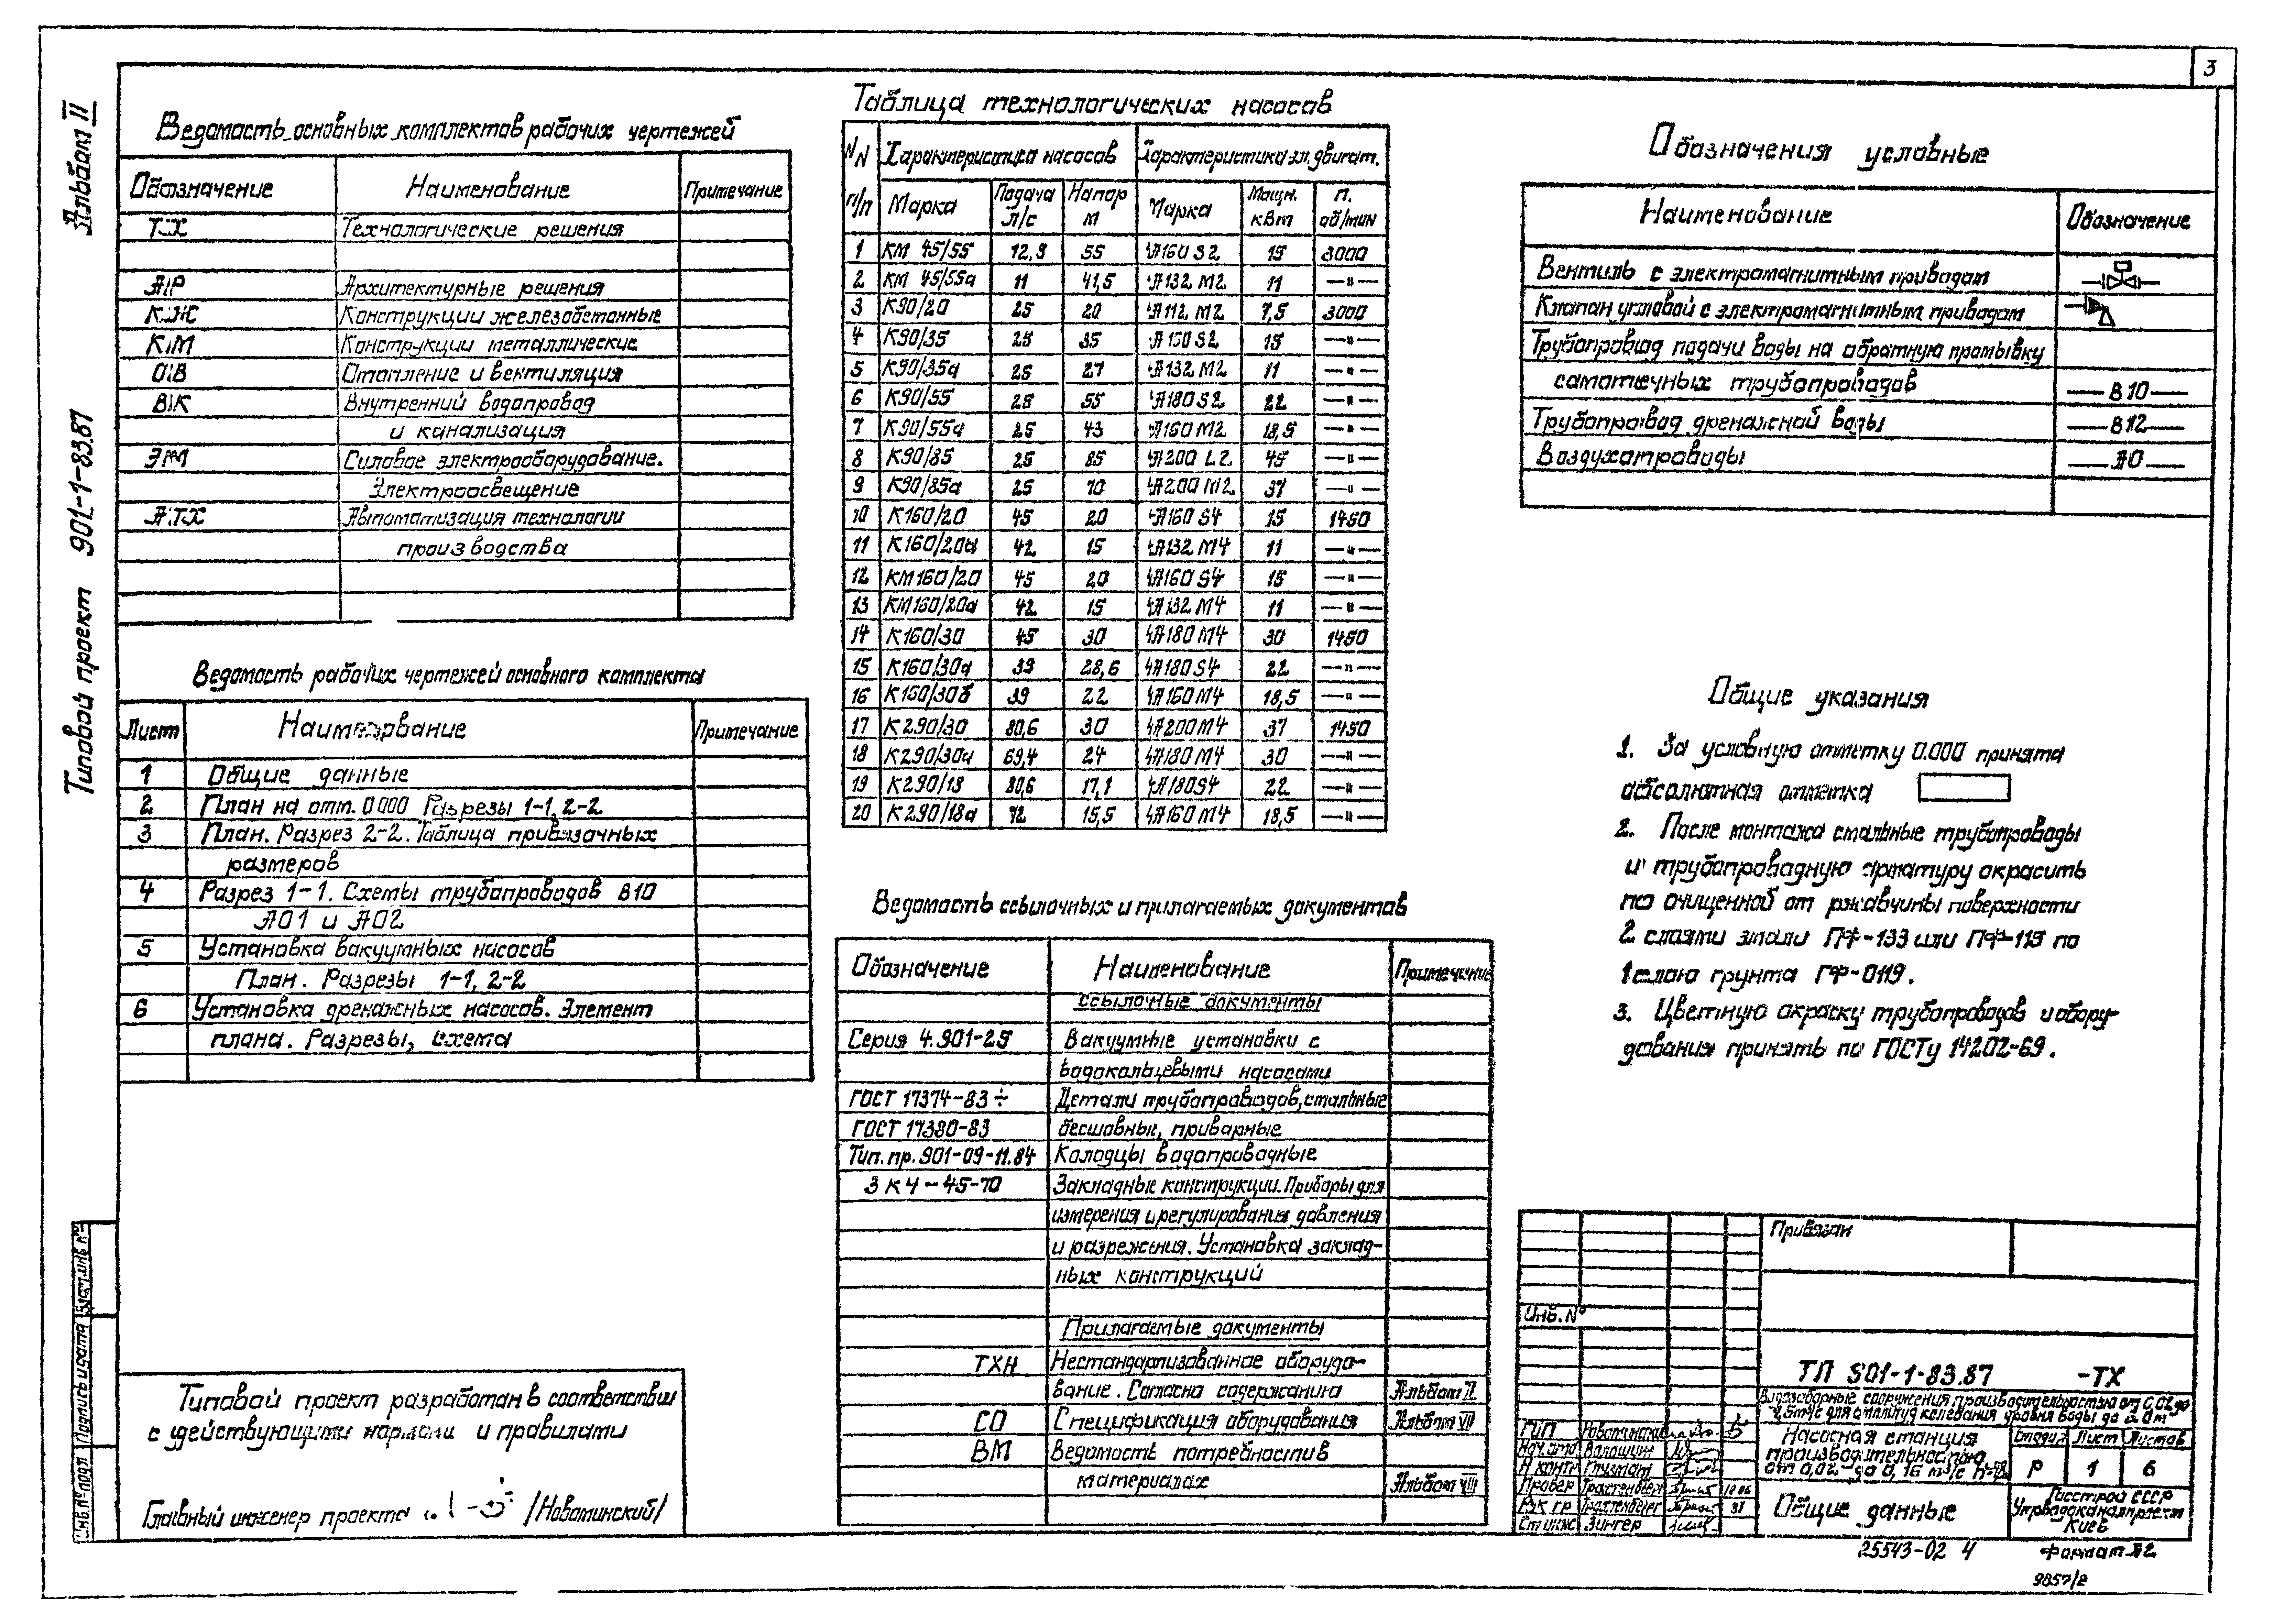 3
Альбом II
Типовой проект 901-1-83.87
Ведомость основных комплектов рабочих чертежей
Обозначение Наименование Примечание
ТХ Технологические решения
АР Архитектурные решения
КЖ Конструкции железобетонные
КМ Конструкции металлические
ОВ Отопление и вентиляция
ВК Внутренний водопровод
и канализация
ЭМ Силовое электрооборудование.
Электроосвещение
АТХ Автоматизация технологии
производства
Ведомость рабочих чертежей основного комплекта
Лист Наименование Примечание
1 Общие данные
2 План на отм. 0.000 Разрезы 1-1, 2-2
3 План. Разрез 2-2. Таблица привязочных
размеров
4 Разрез 1-1. Схемы трубопроводов В10
А01 и А02
5 Установка вакуумных насосов
План. Разрезы 1-1, 2-2
6 Установка дренажных насосов. Элемент
плана. Разрезы, схема
Типовой проект разработан в соответствии
с действующими нормами и правилами
Главный инженер проекта /Новоминский/
Таблица технологических насосов
NN п/п Характеристика насосов Характеристика эл. двигат.
Марка Подача л/с Напор м Марка Мощн. кВт п. об/мин
1 КМ 45/55 12,5 55 4А160 S2 15 3000
2 КМ 45/55а 11 41,5 4А132 М2 11 —"—
3 К90/20 25 20 4А112 М2 7,5 3000
4 К90/35 25 35 4А160 S2 15 —"—
5 К90/35а 25 27 4А132 М2 11 —"—
6 К90/55 25 55 4А180 S2 22 —"—
7 К90/55а 25 43 4А160 М2 18,5 —"—
8 К90/85 25 85 4А200 L2 45 —"—
9 К90/85а 25 70 4А200 М2 37 —"—
10 К160/20 45 20 4А160 S4 15 1450
11 К160/20а 42 15 4А132 М4 11 —"—
12 КМ160/20 45 20 4А160 S4 15 —"—
13 КМ160/20а 42 15 4А132 М4 11 —"—
14 К160/30 45 30 4А180 М4 30 1450
15 К160/30а 39 28,6 4А180 S4 22 —"—
16 К160/30б 39 22 4А160 М4 18,5 —"—
17 К290/30 80,6 30 4А200М4 37 1450
18 К290/30а 69,4 24 4А180 М4 30 —"—
19 К290/18 80,6 17,1 4А180S4 22 —"—
20 К290/18а 72 15,5 4А160 М4 18,5 —"—
Ведомость ссылочных и прилагаемых документов
Обозначение Наименование Примечание
Ссылочные документы
Серия 4.901-25 Вакуумные установки с
водокольцевыми насосами
ГОСТ 17374-83 ÷ Детали трубопроводов, стальные
ГОСТ 17380-83 бесшовные, приварные
Тип. пр. 901-09-11.84 Колодцы водопроводные
ЗК4-45-70 Закладные конструкции. Приборы для
измерения и регулирования давления
и разрежения. Установка заклад-
ных конструкций
Прилагаемые документы
ТХН Нестандартизованное оборудо-
вание. Согласно содержанию Альбом II
СО Спецификация оборудования Альбом VII
ВМ Ведомость потребностив
материалах Альбом VIII
Обозначения условные
Наименование Обозначение
Вентиль с электромагнитным приводом
Клапан угловой с электромагнитным приводом
Трубопровод подачи воды на обратную промывку
самотечных трубопроводов —В10—
Трубопровод дренажной воды —В12—
Воздухопроводы —А0—
Общие указания
1. За условную отметку 0.000 принята
абсолютная отметка
2. После монтажа стальные трубопроводы
и трубопроводную арматуру окрасить
по очищенной от ржавчины поверхности
2 слоями эмали ПФ-133 или ПФ-115 по
1 слою грунта ГФ-0119.
3. Цветную окраску трубопроводов и обору-
дования принять по ГОСТу 14202-69.
Привязан
Инв. №
ТП 901-1-83.87 -ТХ
Водозаборные сооружения производительностью от 0,02 до
для амплитуд колебания уровня воды до
Насосная станция
производительностью
от 0,02 до 0,16 м³/с
Стадия Лист Листов
Р 1 6
Общие данные
Госстрой СССР
Укрводоканалпроект
Киев
ГИП Новоминский
Нач. отд Волошин
Н. контр Глузман
Провер Трахтенберг
Рук. гр Трахтенберг
Ст инж Зингер
Взам. инв. №
Подпись и дата
Инв. № подл
25543-02 4
Формат А2
9857/2